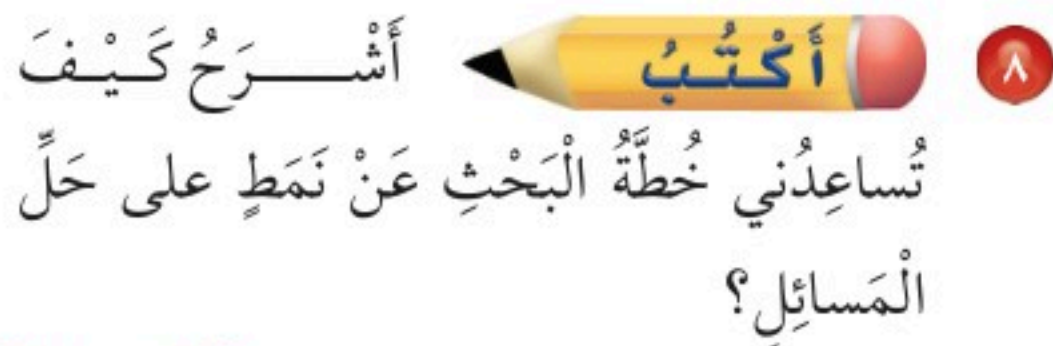 ٨ أَكْتُبُ أَشْـــرَحُ كَـيْـفَ
تُساعِدُني خُطَّةُ الْبَحْثِ عَنْ نَمَطٍ على حَلِّ
الْمَسائِلِ؟